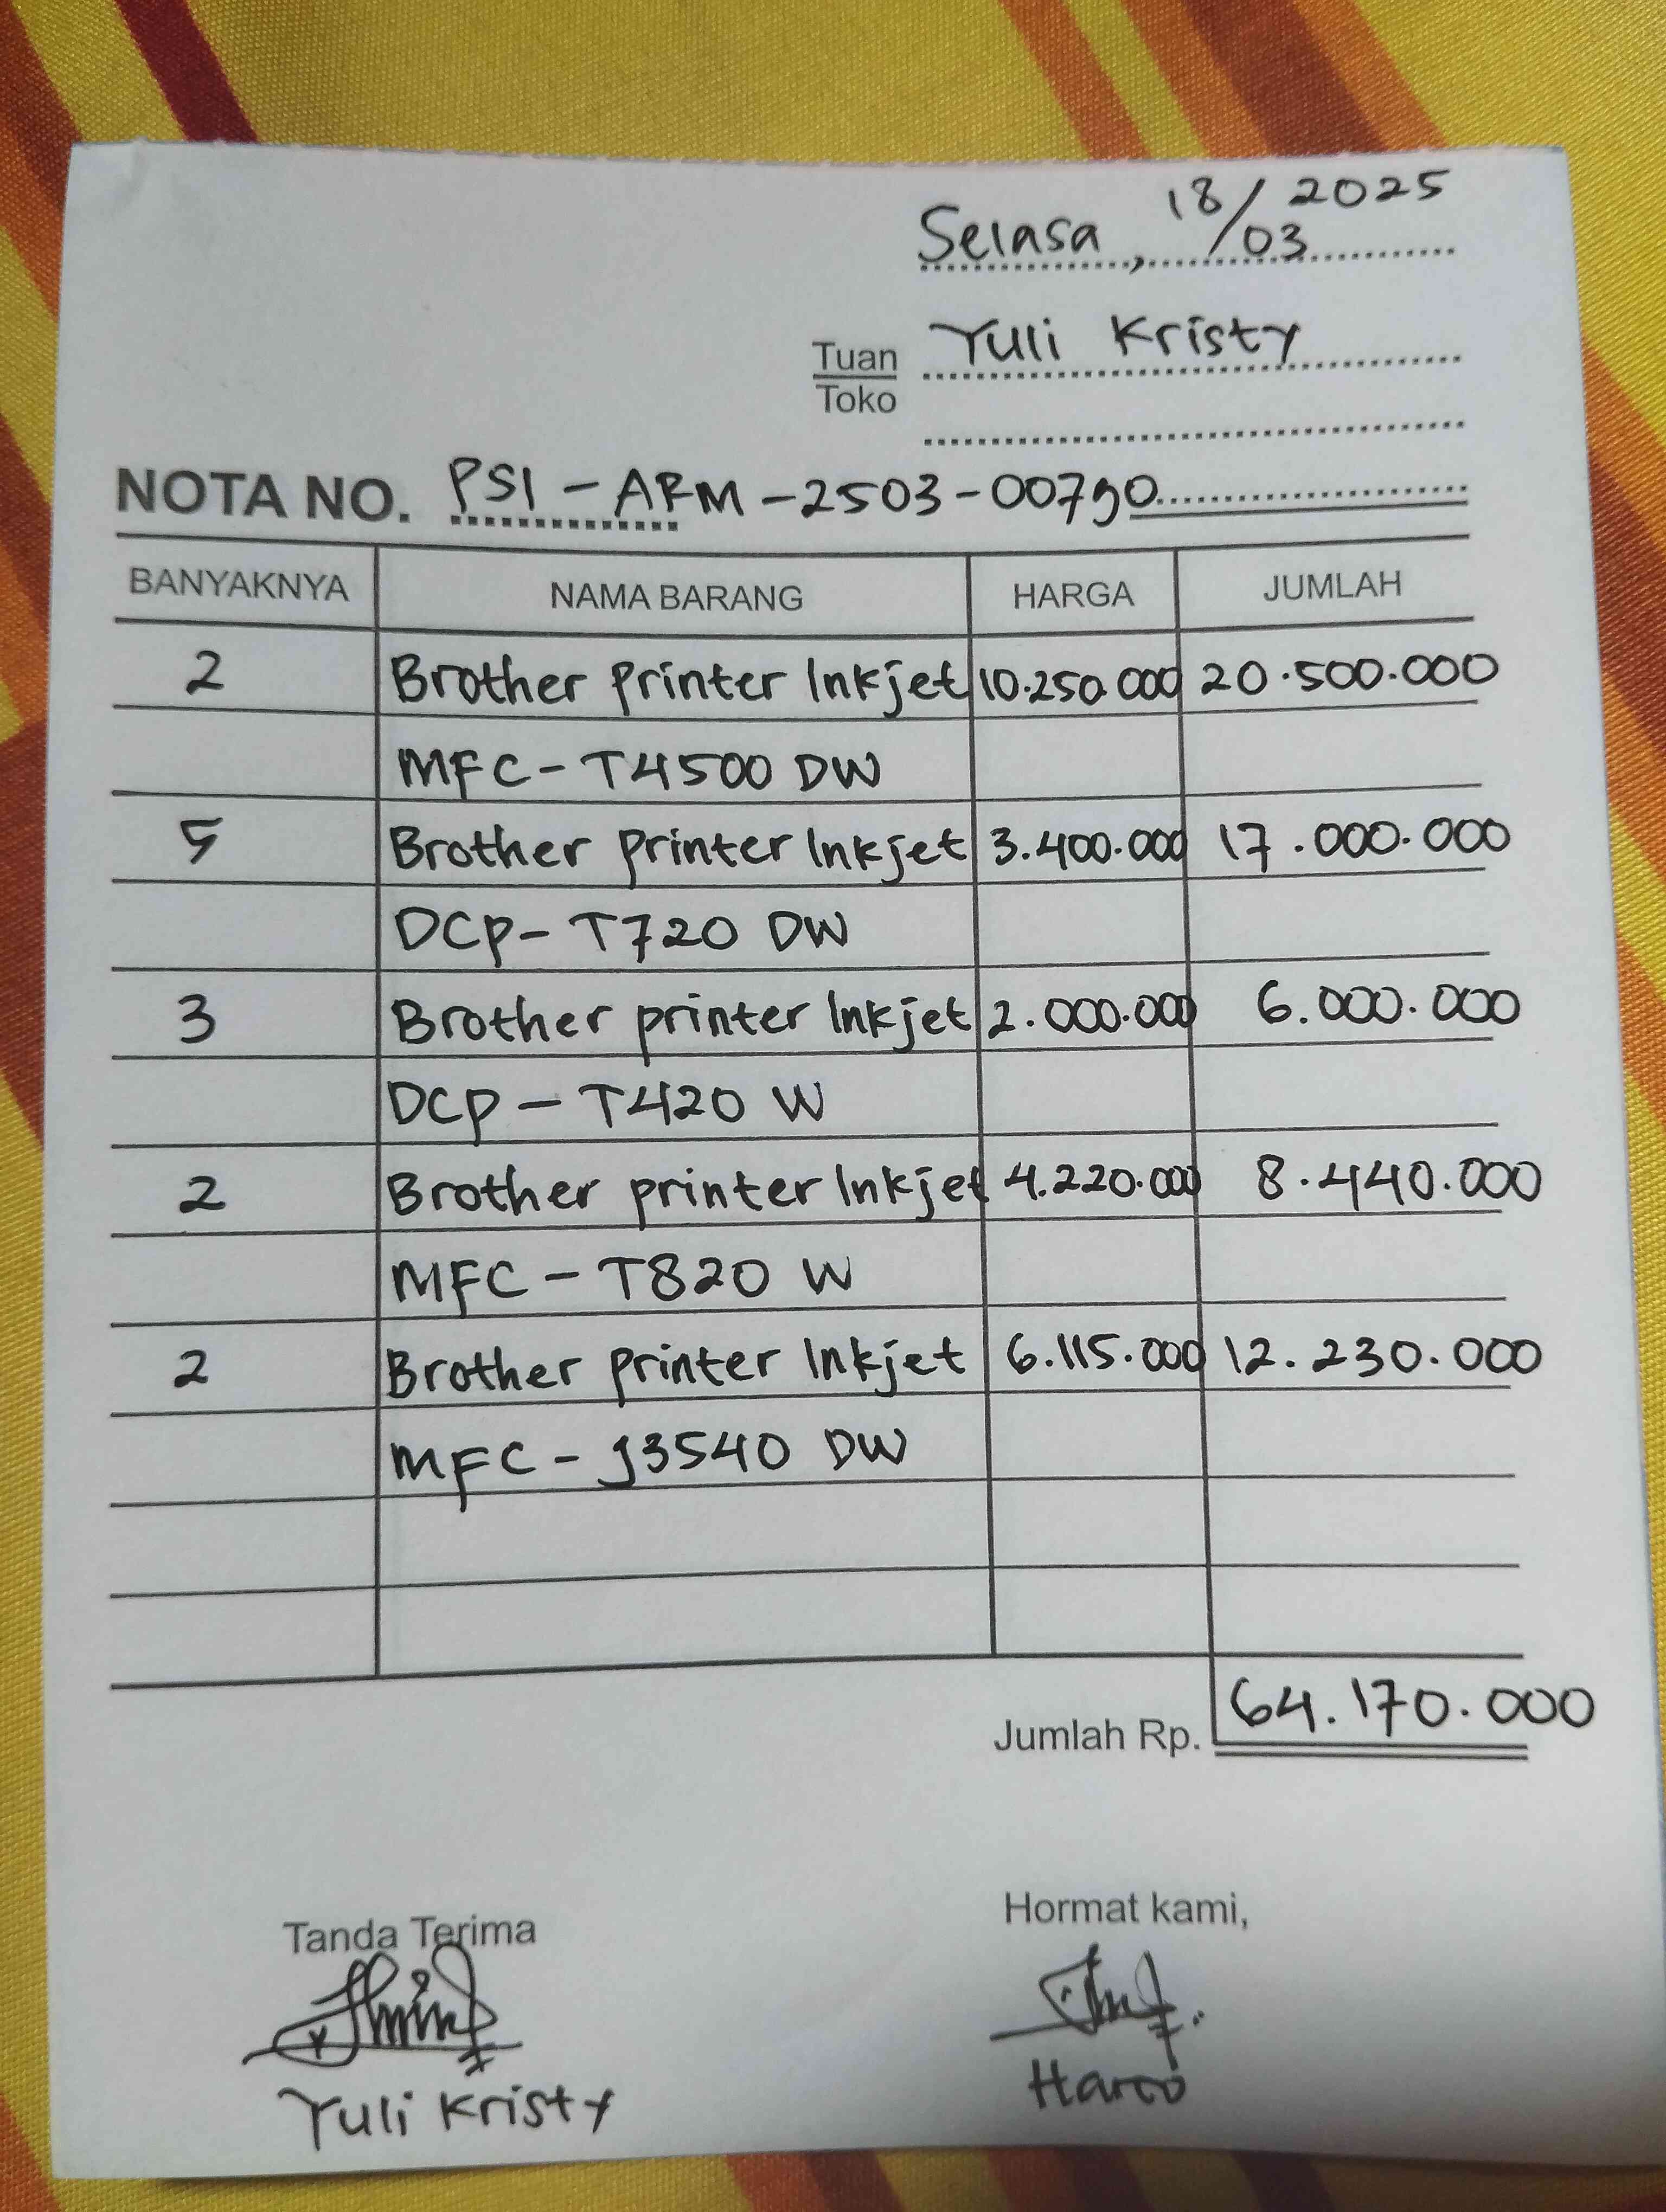 Selasa, 18/03 2025
Tuan Yuli Kristy
Toko
NOTA NO. PSI-ARM-2503-00790
BANYAKNYA NAMA BARANG HARGA JUMLAH
2 Brother Printer Inkjet 10.250.000 20.500.000
MFC-T4500 DW
5 Brother Printer Inkjet 3.400.000 17.000.000
DCP-T720 DW
3 Brother printer Inkjet 2.000.000 6.000.000
DCP-T420 W
2 Brother printer Inkjet 4.220.000 8.440.000
MFC-T820 W
2 Brother Printer Inkjet 6.115.000 12.230.000
MFC-J3540 DW
Jumlah Rp. 64.170.000
Tanda Terima Hormat kami,
Yuli Kristy